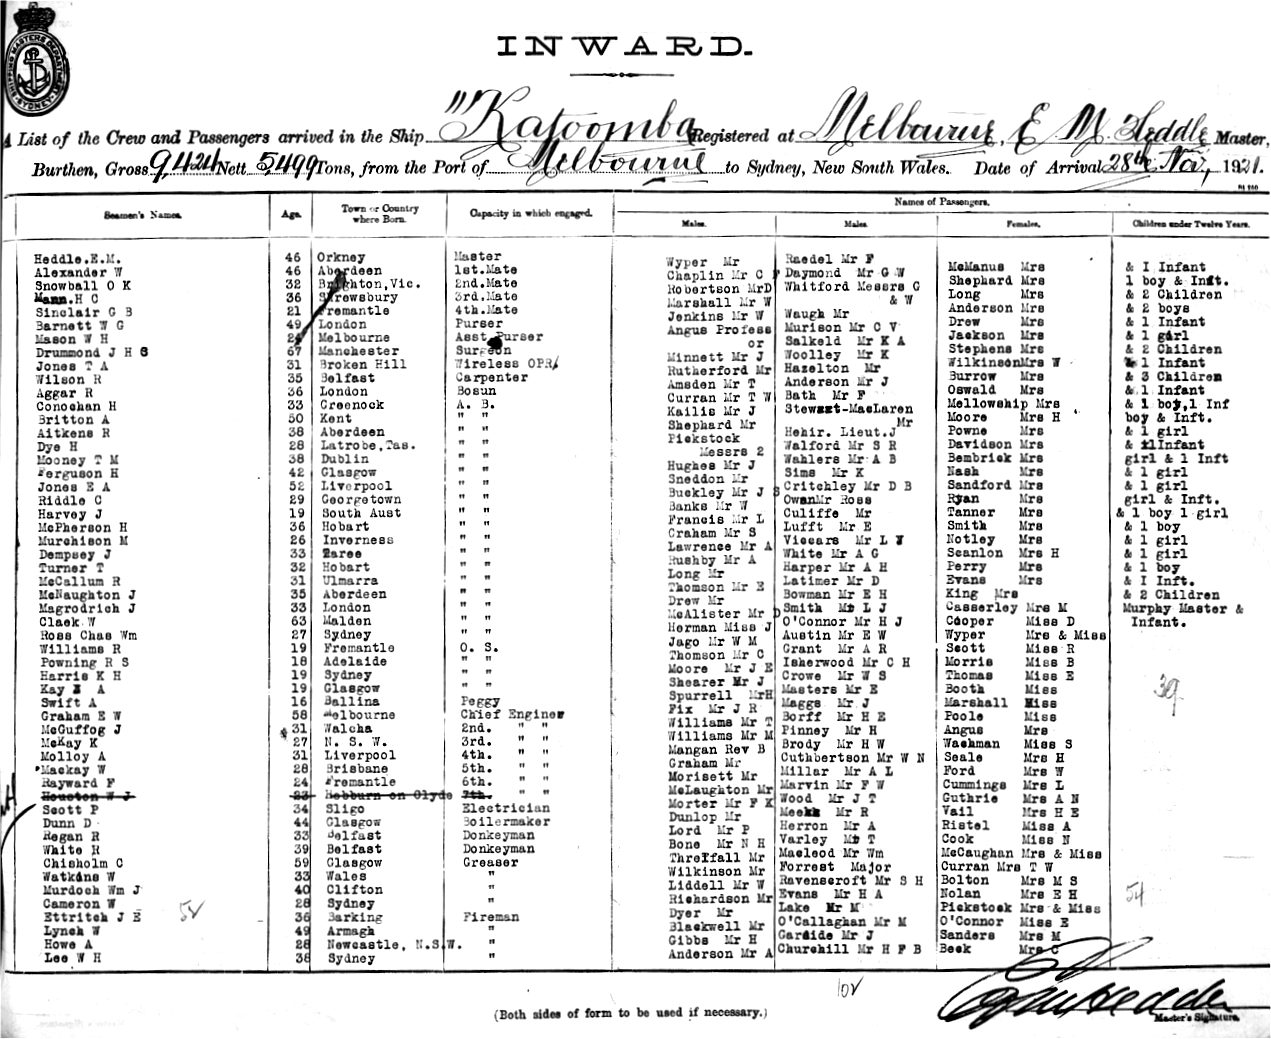 INWARD.
A List of the Crew and Passengers arrived in the Ship "Katoomba Registered at Melbourne, E M Heddle Master,
Burthen, Gross 9424 Nett 5499 Tons, from the Port of Melbourne to Sydney, New South Wales. Date of Arrival 28th Nov, 1921.
Names of Passengers.
Seamen's Names. Age. Town or Country where Born. Capacity in which engaged. Males. Males. Females. Children under Twelve Years.
Heddle.E.M. 46 Orkney Master
Alexander W 46 Aberdeen 1st.Mate
Snowball O K 32 Brighton,Vic. 2nd.Mate
Mann.H C 36 Shrewsbury 3rd.Mate
Sinclair G B 21 Fremantle 4th.Mate
Barnett W G 49 London Purser
Mason W H Melbourne Asst Purser
Drummond J H 67 Manchester Surgeon
Jones T A 31 Broken Hill Wireless OPR
Wilson R 35 Belfast Carpenter
Aggar R 36 London Bosun
Conoohan H 33 Greenock A. B.
Britton A 50 Kent " "
Aitkens R 38 Aberdeen " "
Dye H 28 Latrobe,Tas. " "
Mooney T M 38 Dublin " "
Ferguson H 42 Glasgow " "
Jones E A 52 Liverpool " "
Riddle C 29 Georgetown " "
Harvey J 19 South Aust " "
McPherson H 36 Hobart " "
Murchison M 26 Inverness " "
Dempsey J 33 Taree " "
Turner T 32 Hobart " "
McCallum R 31 Ulmarra " "
McNaughton J 35 Aberdeen " "
Magrodrich J 33 London " "
Claek W 63 Malden " "
Ross Chas Wm 27 Sydney " "
Williams R 19 Fremantle O. S.
Powning R S 18 Adelaide " "
Harris K H 19 Sydney " "
Kay A 19 Glasgow " "
Swift A 16 Ballina Peggy
Graham E W 58 Melbourne Chief Engineer
McGuffog J 31 Walcha 2nd. " "
McKay K 27 N. S. W. 3rd. " "
Molloy A 31 Liverpool 4th. " "
Mackay W 28 Brisbane 5th. " "
Hayward F 24 Fremantle 6th. " "
Houston W J 23 Hebburn on Clyde 7th. " "
Scott P 34 Sligo Electrician
Dunn D 44 Glasgow Boilermaker
Regan R 33 Belfast Donkeyman
White R 39 Belfast Donkeyman
Chisholm C 59 Glasgow Greaser
Watkins W 33 Wales "
Murdoch Wm J 40 Clifton "
Cameron W 28 Sydney "
Ettritch J E 36 Barking Fireman
Lynch W 49 Armagh "
Howe A 28 Newcastle, N.S.W. "
Lee W H 38 Sydney "
Wyper Mr
Chaplin Mr C
Robertson MrD
Marshall Mr W
Jenkins Mr W
Angus Profess
or
Minnett Mr J
Rutherford Mr
Amsden Mr T
Curran Mr T W
Kailis Mr J
Shephard Mr
Pickstock
Messrs 2
Hughes Mr J
Sneddon Mr
Buckley Mr J S
Banks Mr W
Francis Mr L
Graham Mr S
Lawrence Mr A
Rushby Mr A
Long Mr
Thomson Mr E
Drew Mr
McAlister Mr D
Herman Miss J
Jago Mr W M
Thomson Mr C
Moore Mr J E
Shearer Mr J
Spurrell MrH
Fix Mr J R
Williams Mr T
Williams Mr M
Mangan Rev B
Graham Mr
Morisett Mr
McLaughton Mr
Morter Mr F K
Dunlop Mr
Lord Mr P
Bone Mr N H
Threlfall Mr
Wilkinson Mr
Liddell Mr W
Richardson Mr
Dyer Mr
Blackwell Mr
Gibbs Mr H
Anderson Mr A
Raedel Mr F
Daymond Mr G W
Whitford Messrs G
& W
Waugh Mr
Murison Mr C V
Salkeld Mr K A
Woolley Mr K
Hazelton Mr
Anderson Mr J
Bath Mr F
Stewart-MacLaren
Mr
Hehir. Lieut.J
Walford Mr S R
Wahlers Mr A B
Sims Mr K
Critchley Mr D B
OwenMr Ross
Culiffe Mr
Lufft Mr E
Viccars Mr L
White Mr A G
Harper Mr A H
Latimer Mr D
Bowman Mr E H
Smith Mr L J
O'Connor Mr H J
Austin Mr E W
Grant Mr A R
Isherwood Mr C H
Crowe Mr W S
Masters Mr E
Maggs Mr J
Borff Mr H E
Pinney Mr H
Brody Mr H W
Cuthbertson Mr W N
Millar Mr A L
Marvin Mr F W
Wood Mr J T
Meek Mr R
Herron Mr A
Varley Mr T
Macleod Mr Wm
Forrest Major
Ravenscroft Mr S H
Evans Mr H A
Lake Mr M
O'Callaghan Mr M
Garside Mr J
Churchill Mr H F B
McManus Mrs & I Infant
Shephard Mrs 1 boy & Inft.
Long Mrs & 2 Children
Anderson Mrs & 2 boys
Drew Mrs & 1 Infant
Jackson Mrs & 1 girl
Stephens Mrs & 2 Children
WilkinsonMrs W 1 Infant
Burrow Mrs & 3 Children
Oswald Mrs & 1 Infant
Mellowship Mrs & 1 boy,1 Inf
Moore Mrs H boy & Inft.
Powne Mrs & 1 girl
Davidson Mrs & 1Infant
Bembrick Mrs girl & 1 Inft
Nash Mrs & 1 girl
Sandford Mrs & 1 girl
Ryan Mrs girl & Inft.
Tanner Mrs & 1 boy 1 girl
Smith Mrs & 1 boy
Notley Mrs & 1 girl
Scanlon Mrs H & 1 girl
Perry Mrs & 1 boy
Evans Mrs & I Inft.
King Mrs & 2 Children
Casserley Mrs M Murphy Master &
Cooper Miss D Infant.
Wyper Mrs & Miss
Scott Miss R
Morris Miss B
Thomas Miss E
Booth Miss 39
Marshall Miss
Poole Miss
Angus Mrs
Wachman Miss S
Seale Mrs H
Ford Mrs W
Cummings Mrs L
Guthrie Mrs A N
Vail Mrs H E
Ristel Miss A
Cook Miss N
McCaughan Mrs & Miss
Curran Mrs T W
Bolton Mrs M S
Nolan Mrs E H 54
Pickstock Mrs & Miss
O'Connor Miss E
Sanders Mrs M
Beek Mrs C
52
102
(Both sides of form to be used if necessary.)
Master's Signature.